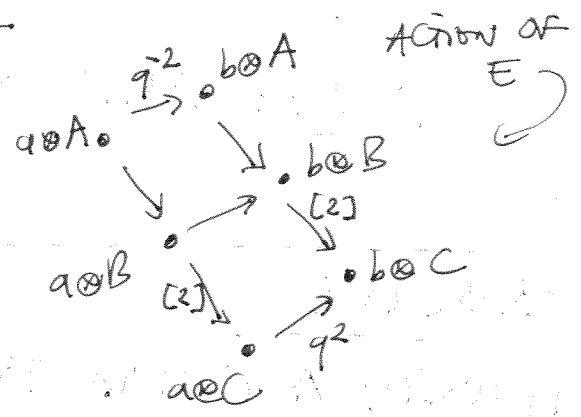 ACTION OF
E
b⊗A
q⁻²
a⊗A
b⊗B
[2]
a⊗B
b⊗C
[2]
q²
a⊗C